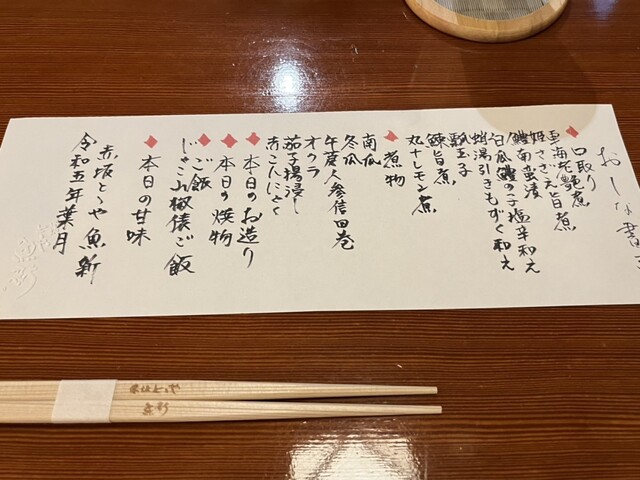 おしな書き
口取り
海老艶煮
姫さざえ旨煮
鱧南蛮漬
白瓜鱧の子塩辛和え
蛸湯引きもずく和え
瓢玉子
鰊旨煮
丸十レモン煮
煮物
南瓜
冬瓜
牛蒡人参信田巻
オクラ
茄子揚浸し
赤こんにゃく
本日のお造り
本日の焼物
ご飯
じゃこ山椒俵ご飯
本日の甘味
赤坂とゝや魚新
令和五年葉月
赤坂とゝや
魚新